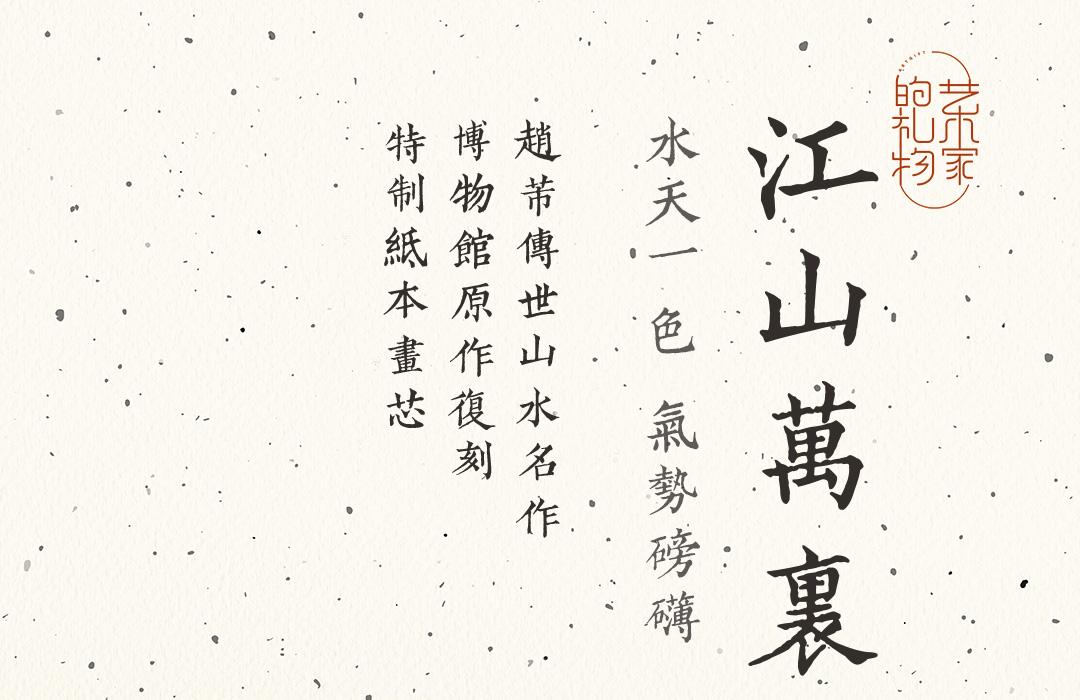 艺术家
的礼物
江山萬裏
水天一色 氣勢磅礴
趙芾傳世山水名作
博物館原作復刻
特制紙本畫芯